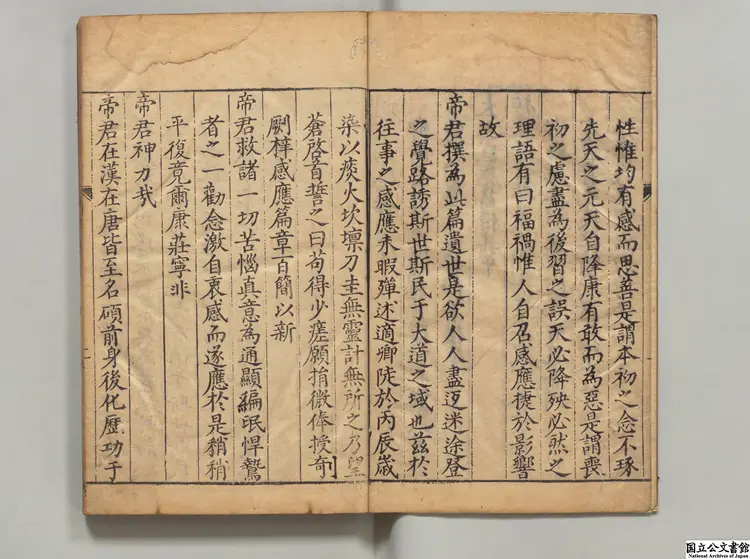 性惟均有感而思善是謂本初之念不琢
先天之元天自降康有敢而為惡是謂喪
初之慮盡為後習之誤天必降殃必然之
理語有曰福禍惟人自召感應捷於影響
故
帝君撰為此篇遺世是欲人人盡迈迷途登
之覺路誘斯世斯民于大道之域也茲於
往事之感應未暇殫述適卿陡於丙辰歲
染以痰火坎壈刀圭無靈計無所之乃望
蒼啓首誓之曰苟得少瘥願捐微俸授奇
劂梓感應篇章百簡以新
帝君救諸一切苦惱真意為通顯編氓悍鷔
者之一勸念激自衷感而遂應於是稍稍
平復竟爾康莊寧非
帝君神力哉
帝君在漢在唐皆至名碩前身後化歷功于
国立公文書館
National Archives of Japan